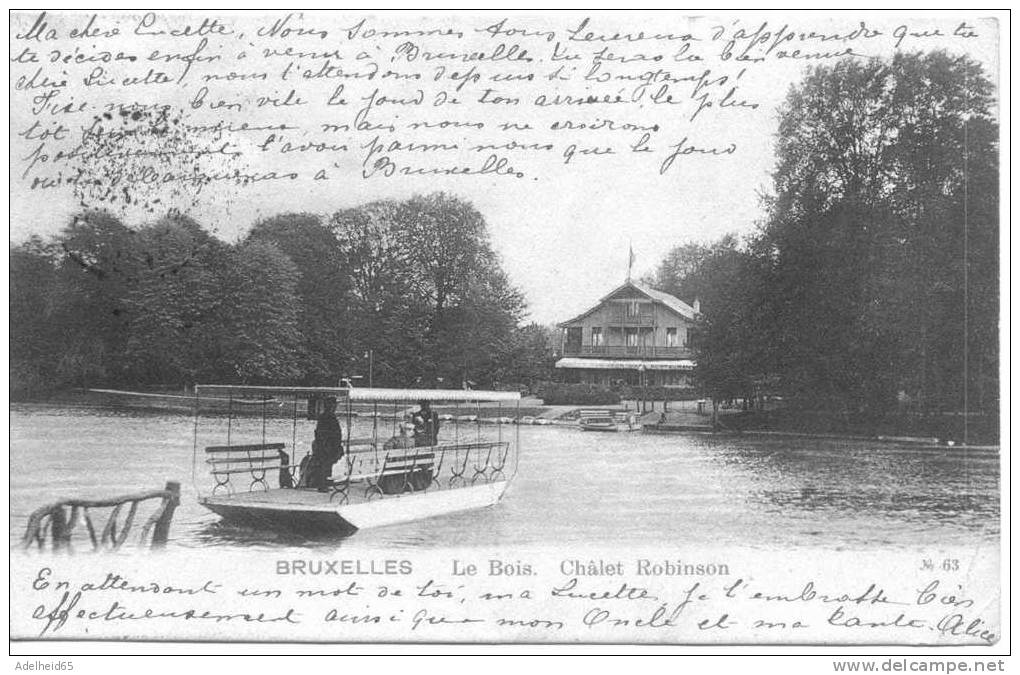 Ma chère Lucette, Nous sommes tous heureux d'apprendre que tu
te décides enfin à venir à Bruxelles. Tu seras la bien venue
chère Lucette, nous t'attendons depuis si longtemps!
Fixe-nous bien vite le jour de ton arrivée, le plus
tôt sera le mieux, mais nous ne croirons
positivement t'avoir parmi nous que le jour
où tu débarqueras à Bruxelles.
BRUXELLES Le Bois. Châlet Robinson № 63
En attendant un mot de toi, ma Lucette, je t'embrasse bien
affectueusement ainsi que mon Oncle et ma tante. Alice
Adelheid65
delcampe.net